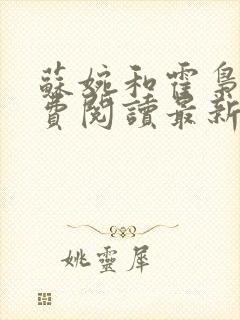 蘇婉和霍梟
費閱讀最新
姚靈犀